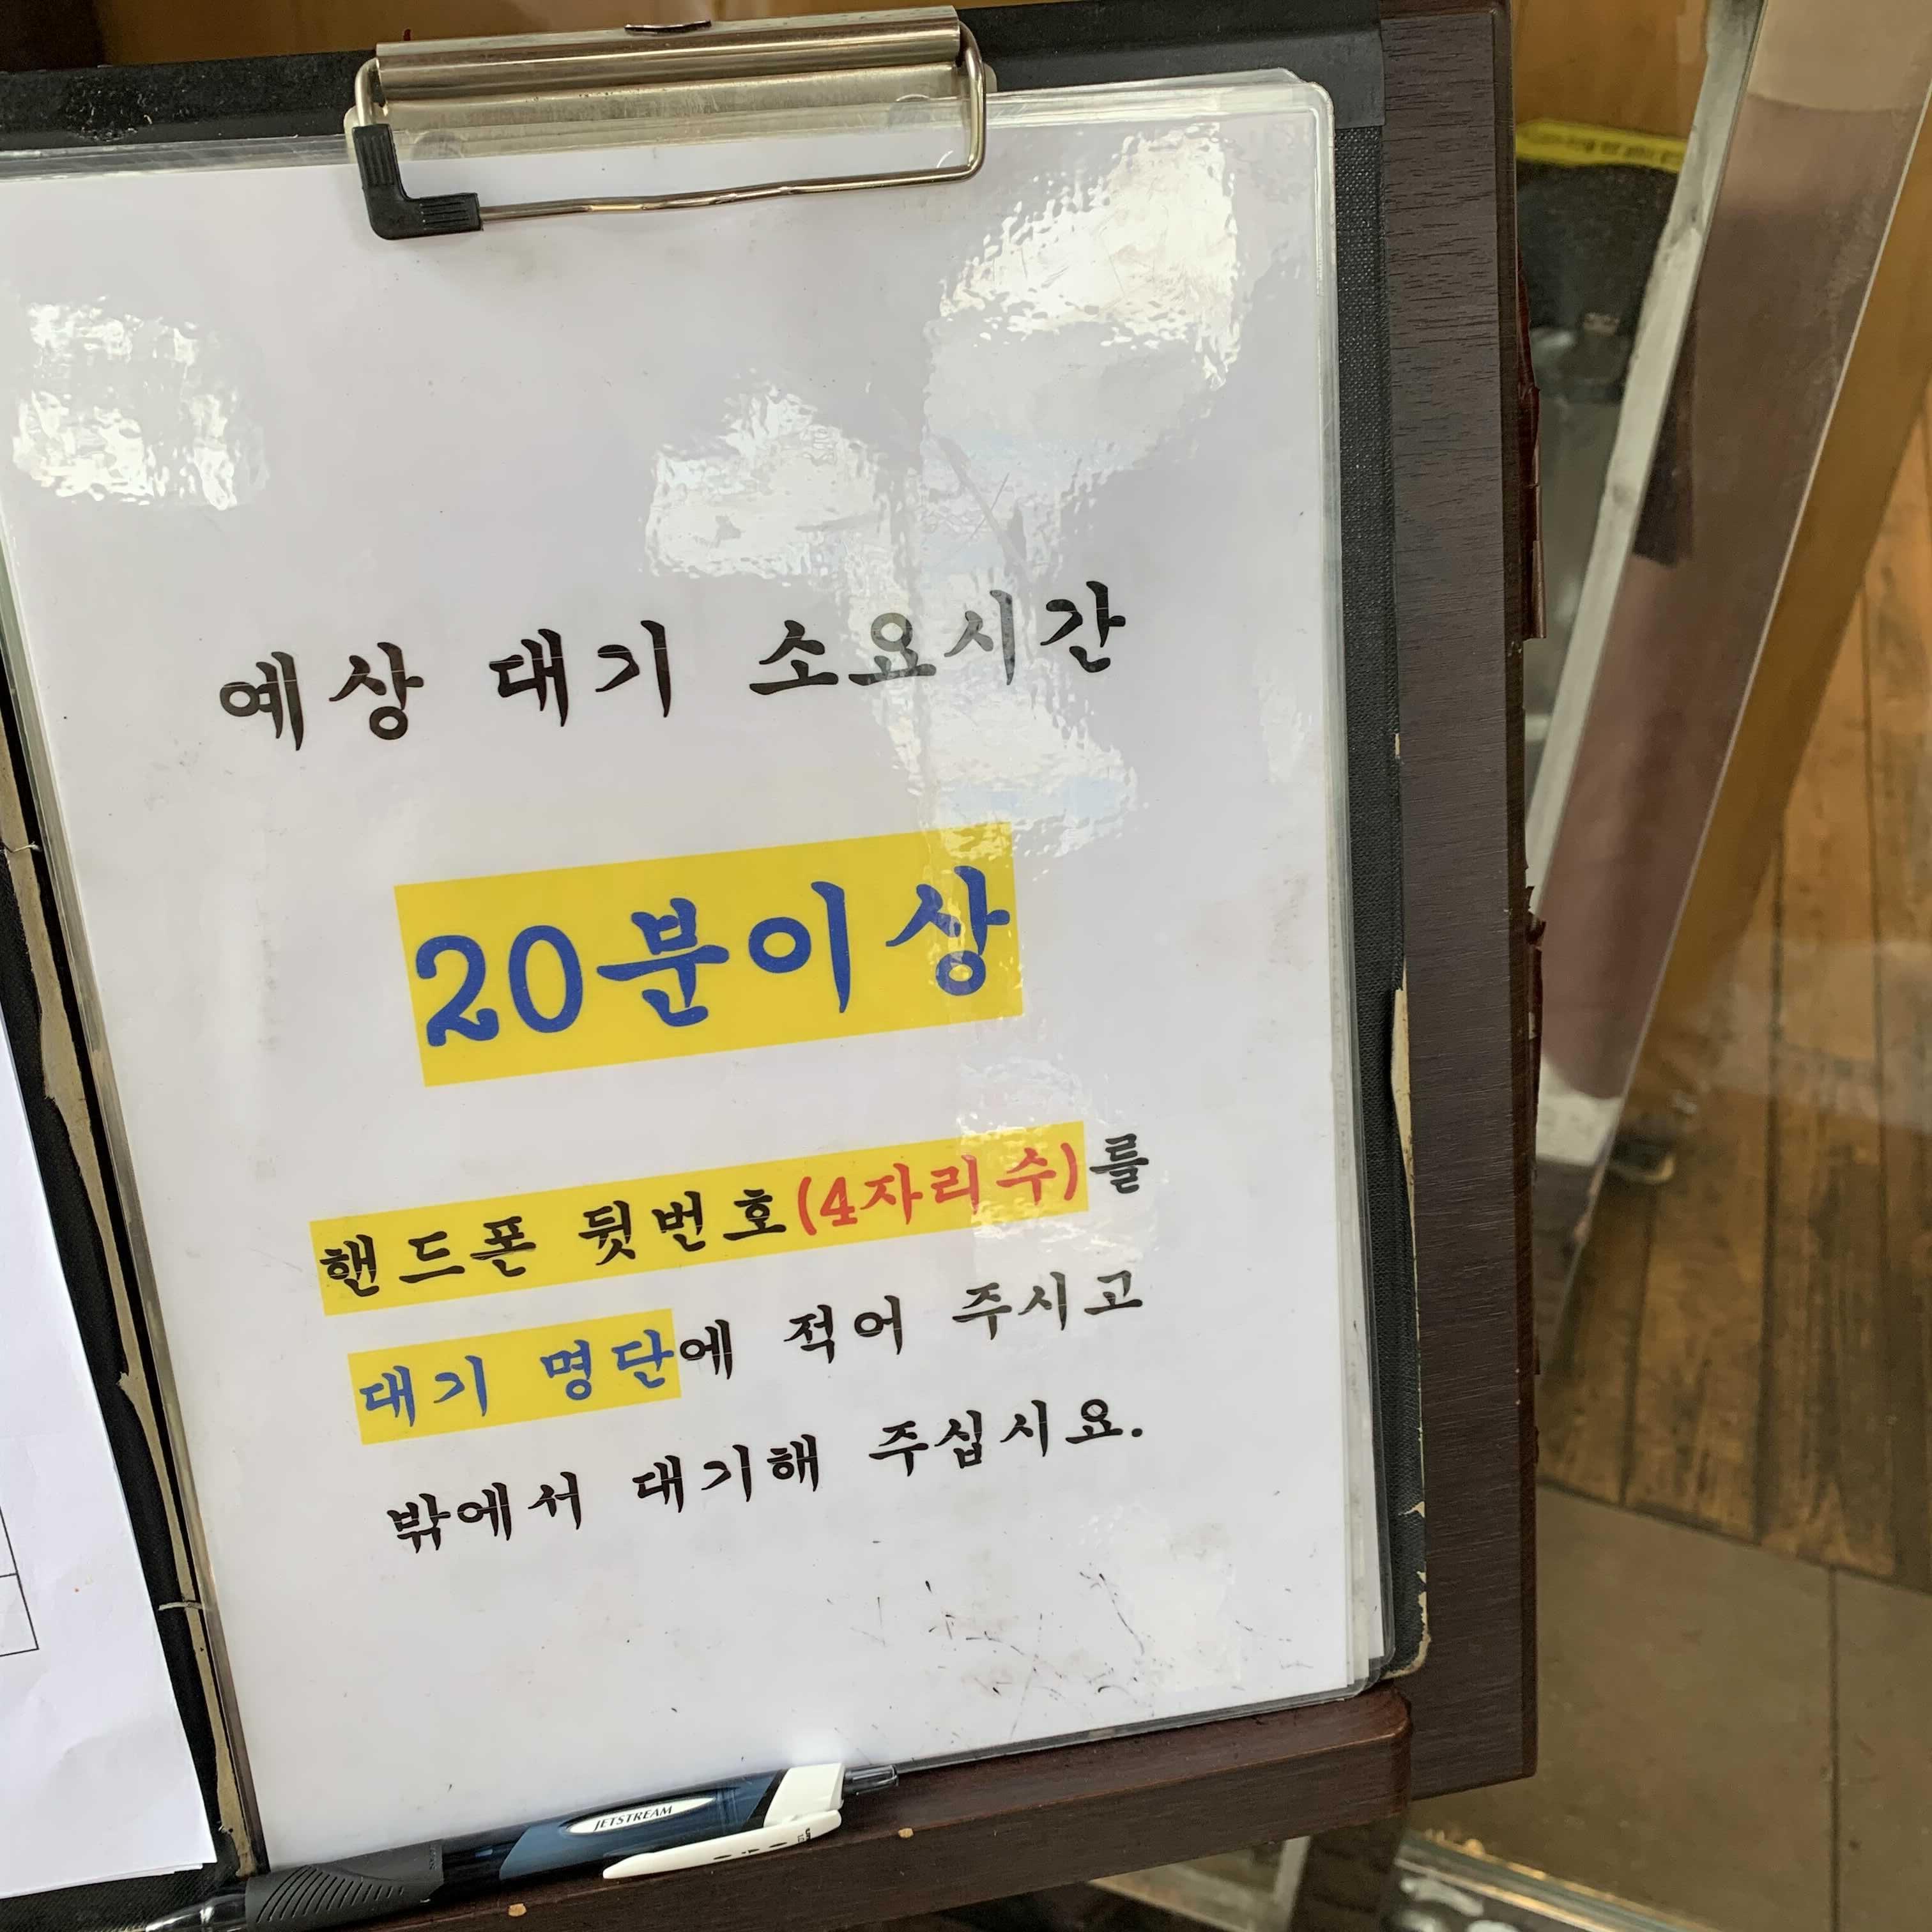 예상 대기 소요시간
20분이상
핸드폰 뒷번호(4자리 수)를
대기 명단에 적어 주시고
밖에서 대기해 주십시요.
JETSTREAM